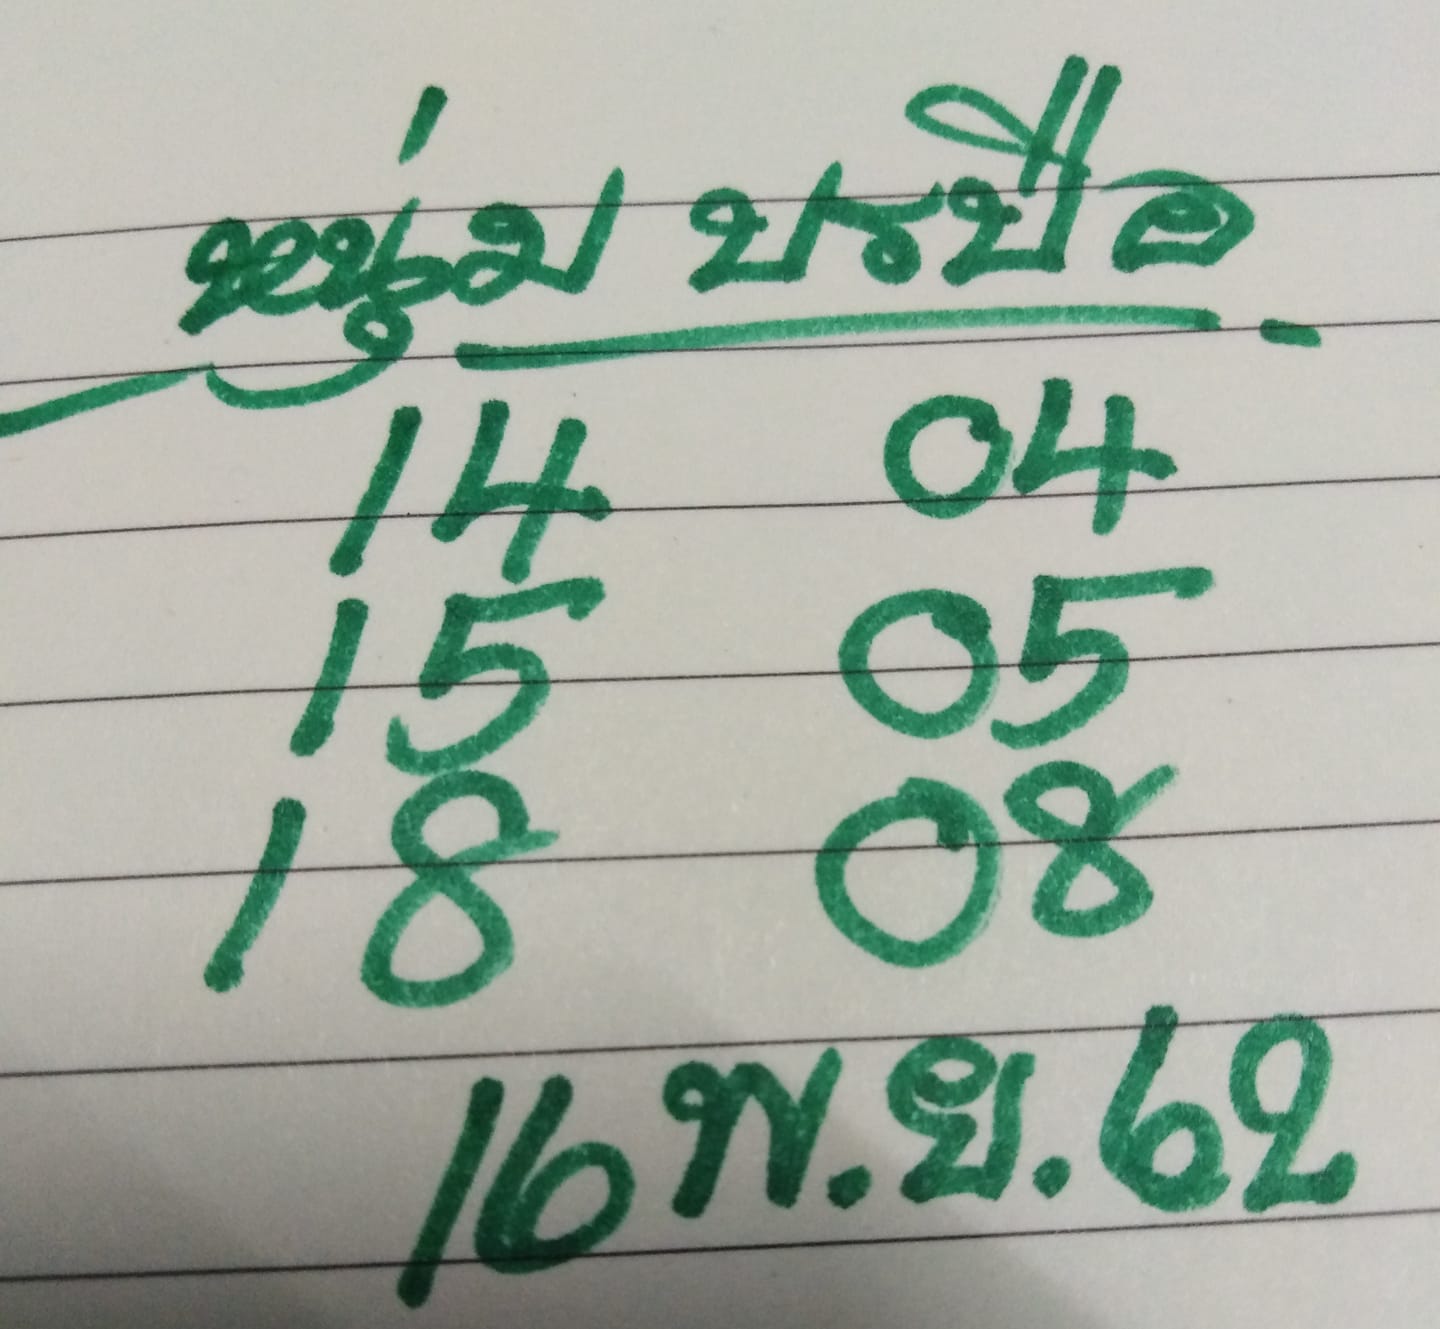 หนุ่ม บรบือ
14 04
15 05
18 08
16 พ.ย. 62